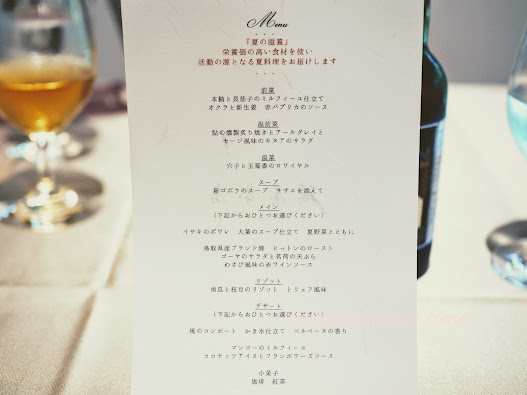 Menu
『夏の滋養』
栄養価の高い食材を使い
活動の源となる夏料理をお届けします
前菜
本鮪と長茄子のミルフィーユ仕立て
オクラと新生姜 赤パプリカのソース
温前菜
鮎の燻製炙り焼きとアールグレイと
セージ風味のキヌアのサラダ
温菜
穴子と玉蜀黍のロワイヤル
スープ
新ゴボウのスープ サザエを添えて
メイン
（下記からおひとつお選びください）
イサキのポワレ 大葉のスープ仕立て 夏野菜とともに
鳥取県産ブランド豚 とっトンのロースト
ゴーヤのサラダと茗荷の天ぷら
わさび風味の赤ワインソース
リゾット
南瓜と枝豆のリゾット トリュフ風味
デザート
（下記からおひとつお選びください）
桃のコンポート かき氷仕立て ベルベーヌの香り
マンゴーのミルフィーユ
ココナッツアイスとフランボワーズソース
小菓子
珈琲 紅茶